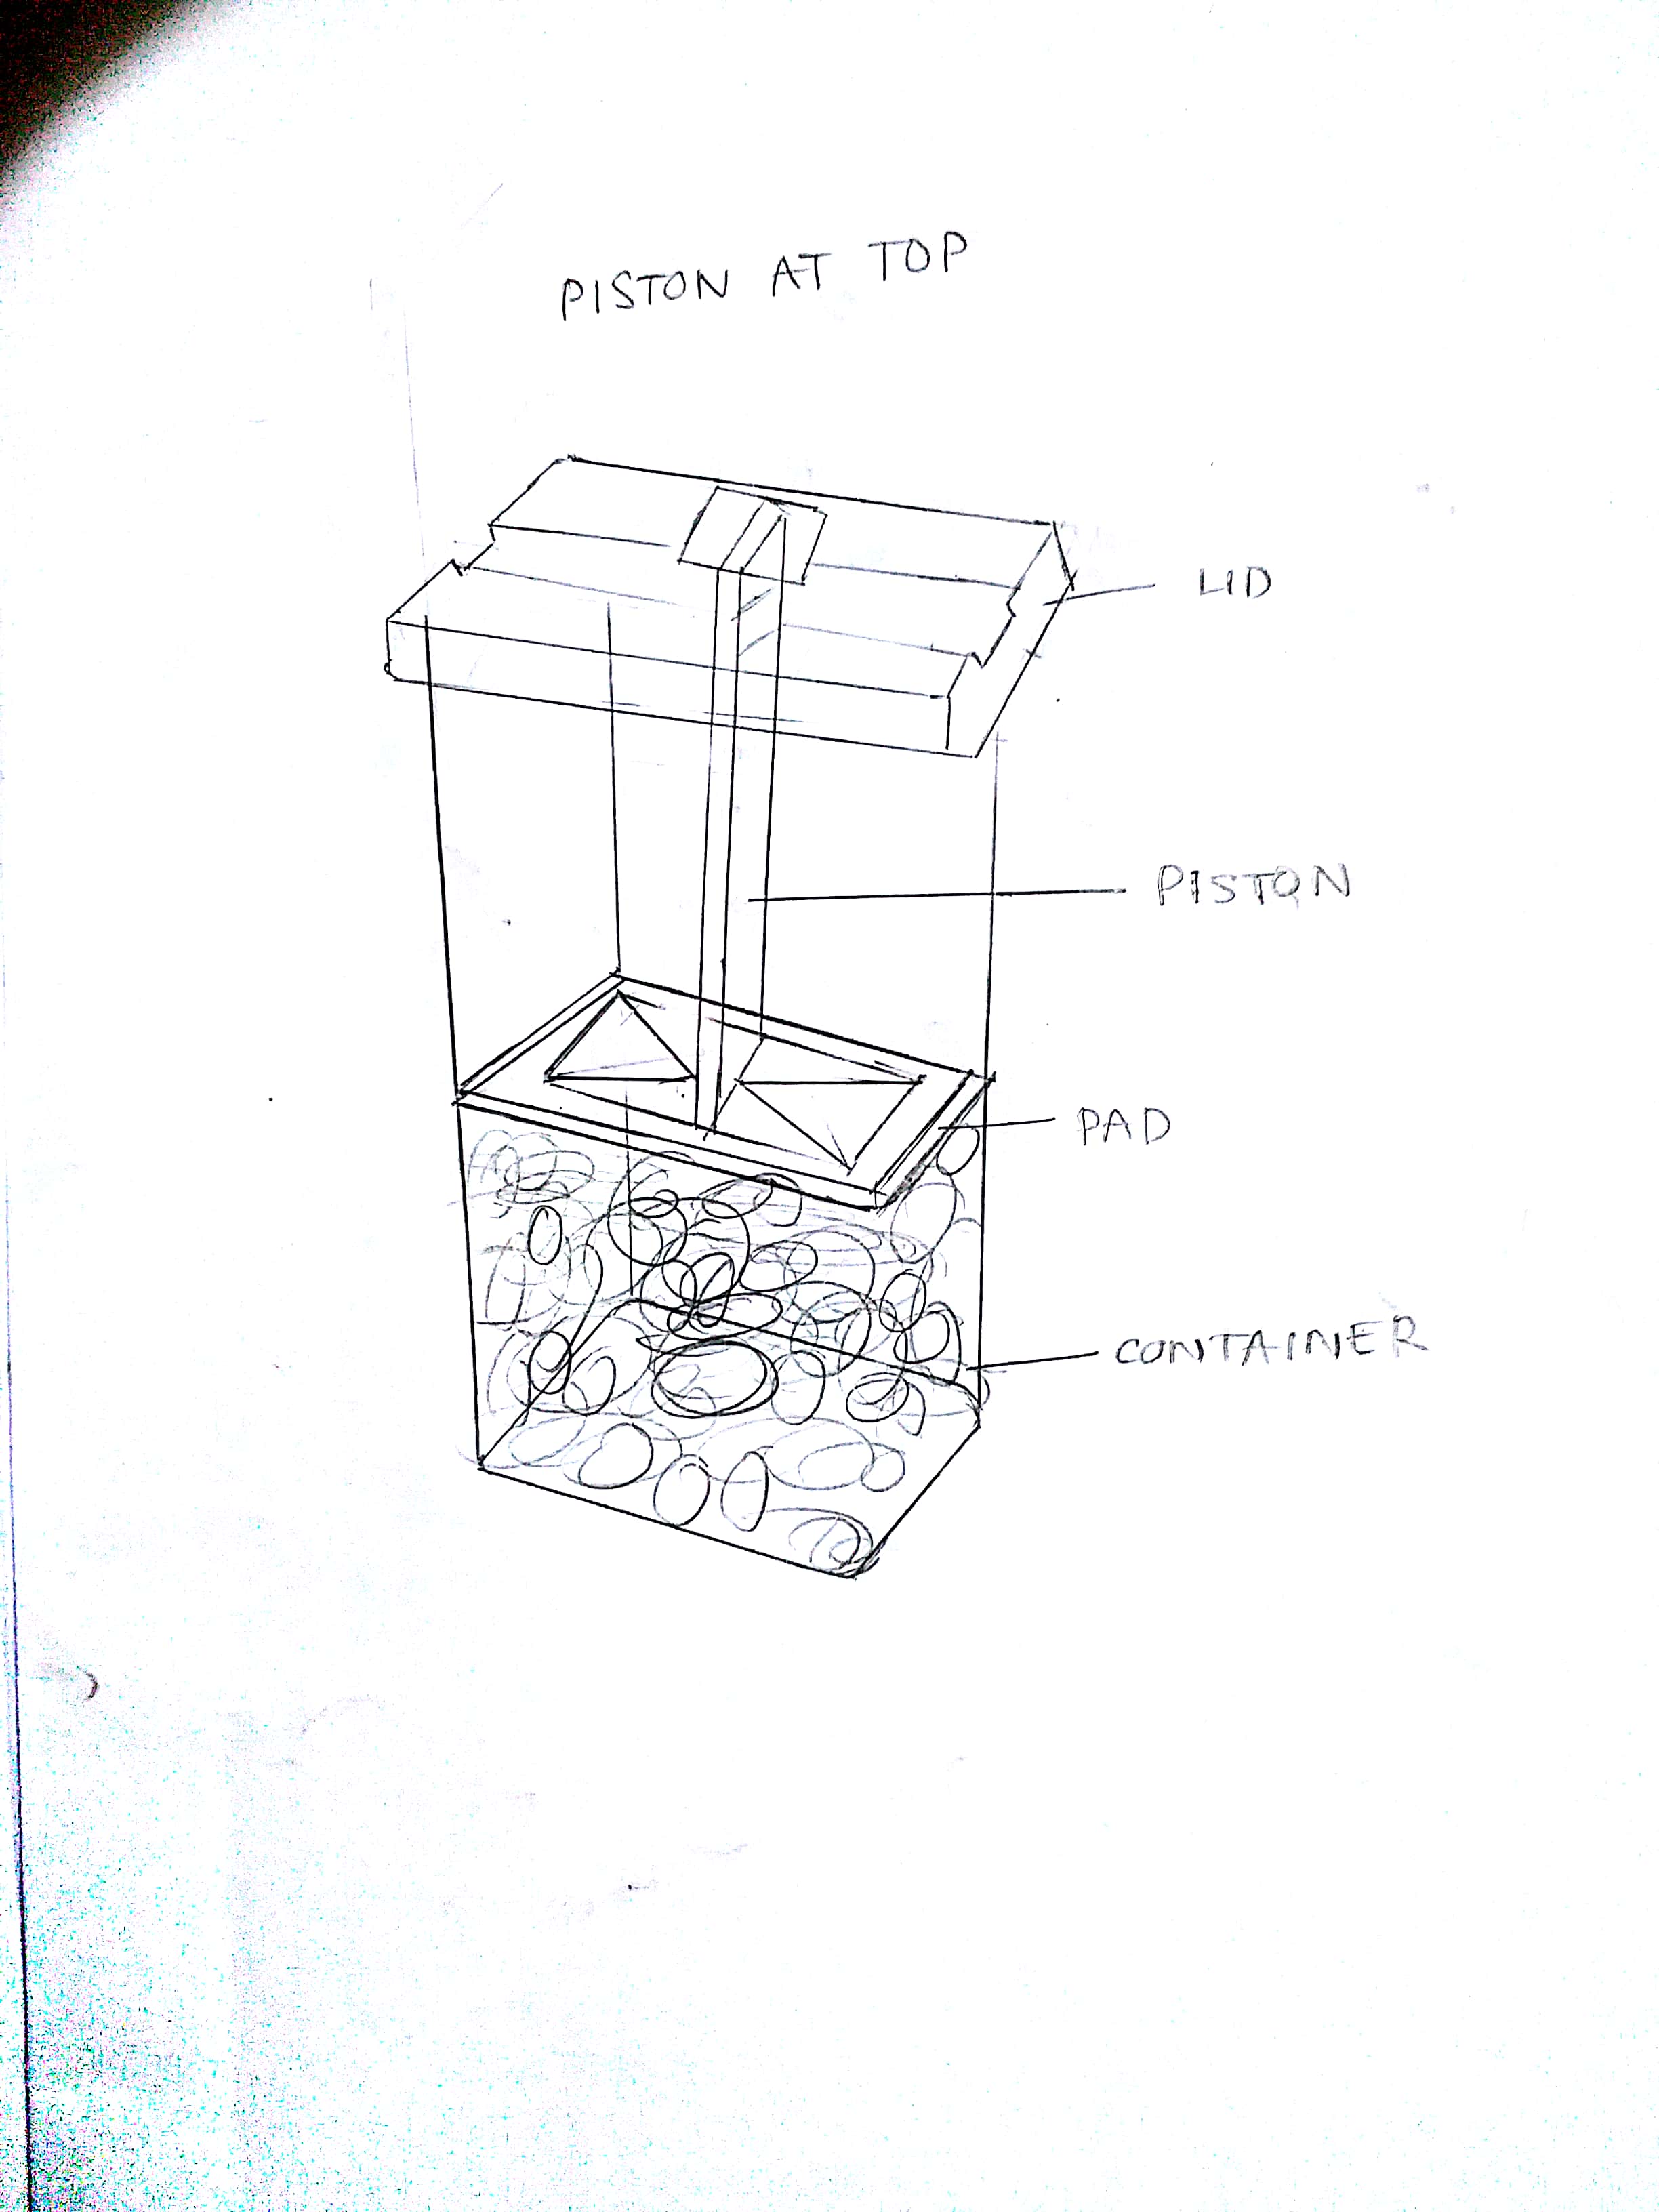 PISTON AT TOP
LID
PISTON
PAD
CONTAINER